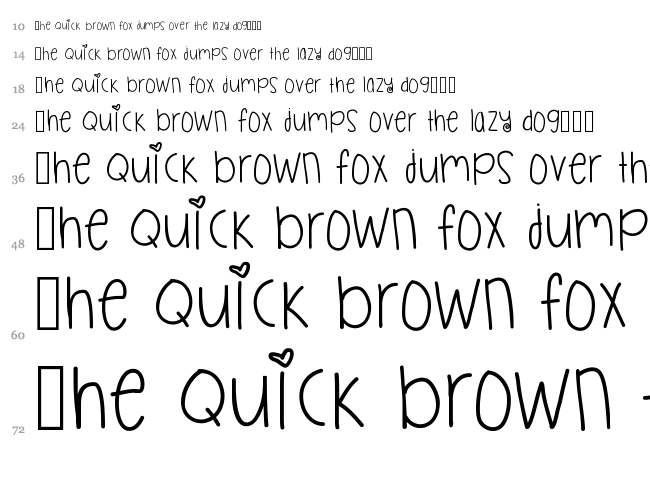 10 □he quick brown fox jumps over the lazy dog□□□
14 □he quick brown fox jumps over the lazy dog□□□
18 □he quick brown fox jumps over the lazy dog□□□
24 □he quick brown fox jumps over the lazy dog□□□
36 □he quick brown fox jumps over th
48 □he quick brown fox jump
60 □he quick brown fox
72 □he quick brown